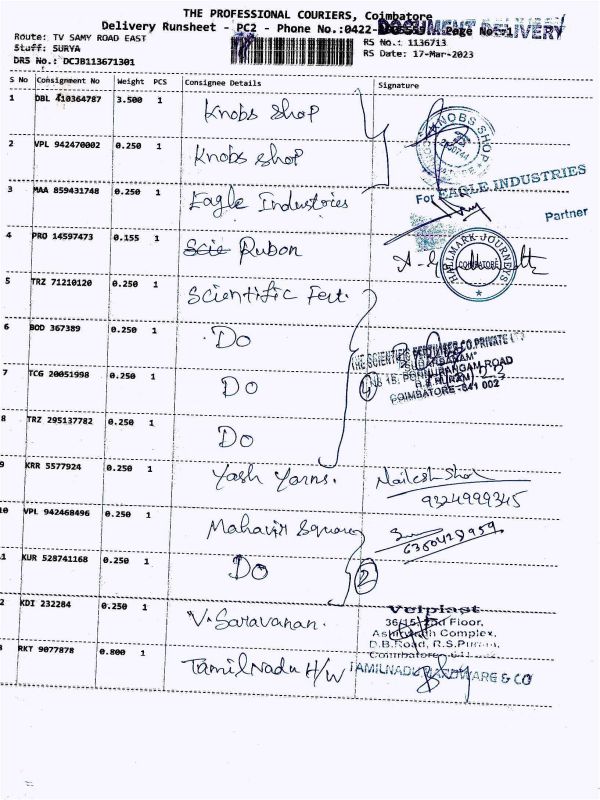 THE PROFESSIONAL COURIERS, Coimbatore
Delivery Runsheet - PC2 - Phone No.:0422- Page No.:1
DOCUMENT DELIVERY
Route: TV SAMY ROAD EAST
RS No.: 1136713
Staff: SURYA
RS Date: 17-Mar-2023
DRS No.: DCJB113671301
S No Consignment No Weight PCS Consignee Details Signature
1 DBL 410364787 3.500 1 Knobs Shop
KNOBS SHOP
2 VPL 942470002 0.250 1 Knobs shop
3 MAA 859431748 0.250 1 Eagle Industries
For EAGLE INDUSTRIES
Partner
4 PRO 14597473 0.155 1 Scie Rubon
HALLMARK JOURNEYS
COIMBATORE
5 TRZ 71210120 0.250 1 Scientific Fert.
6 BOD 367389 0.250 1 Do
THE SCIENTIFIC FERTILISER CO.PRIVATE LTD
7 TCG 20051998 0.250 1 Do
4
ROAD
COIMBATORE-641 002
8 TRZ 295137782 0.250 1 Do
9 KRR 5577924 0.250 1 Yash Yarns.
Nailesh Shah
9324999345
10 VPL 942468496 0.250 1 Mahavir Square
6380428959
11 KUR 528741168 0.250 1 Do
2
2 KDI 232284 0.250 1 V. Saravanan.
Velplast
36/15, 2nd Floor,
Complex,
D.B.Road, R.S.Puram,
Coimbatore-641
3 RKT 9077878 0.800 1 Tamil Nadu H/W
TAMILNADU HARDWARE & CO